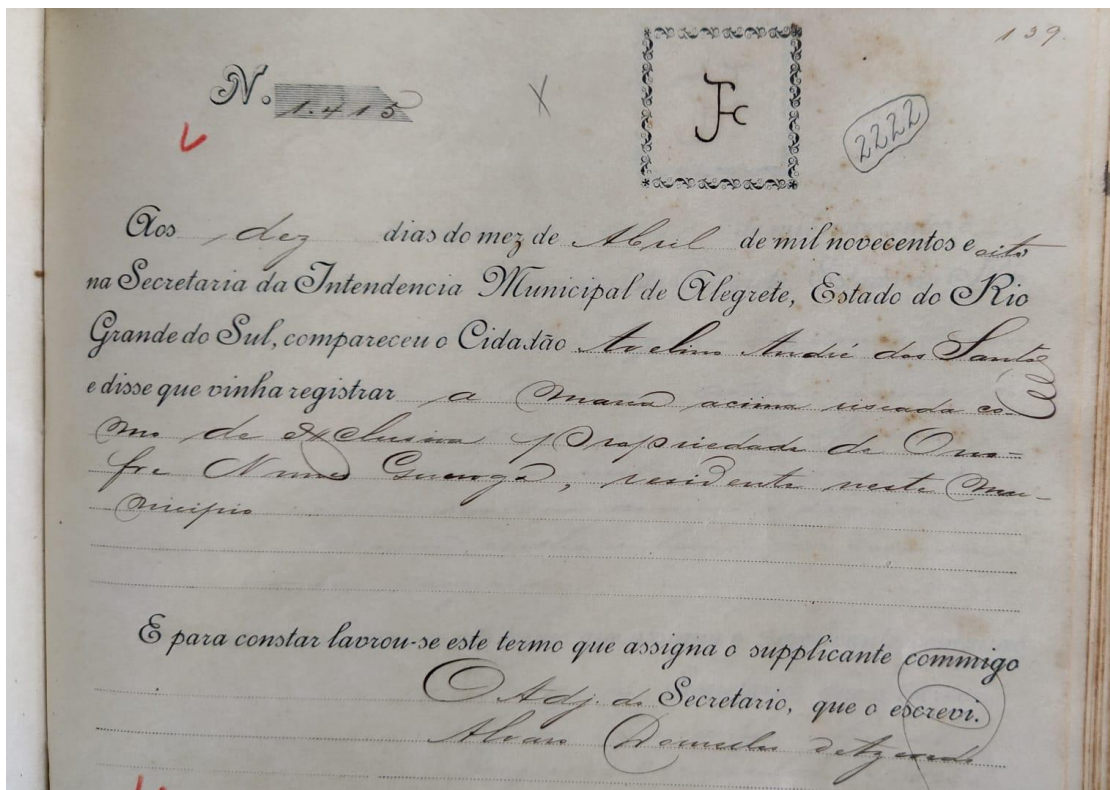 139.
N. 1.415
2222
Aos dez dias do mez de Abril de mil novecentos e oito
na Secretaria da Intendencia Municipal de Alegrete, Estado do Rio
Grande do Sul, compareceu o Cidadão Avelino André dos Santos
e disse que vinha registrar a marca acima riscada co-
mo de exclusiva propriedade de Ono-
fre Nunes, residente neste Mu-
nicipio
E para constar lavrou-se este termo que assigna o supplicante commigo
O Adj. do Secretario, que o escrevi.
Alvaro de Azevedo